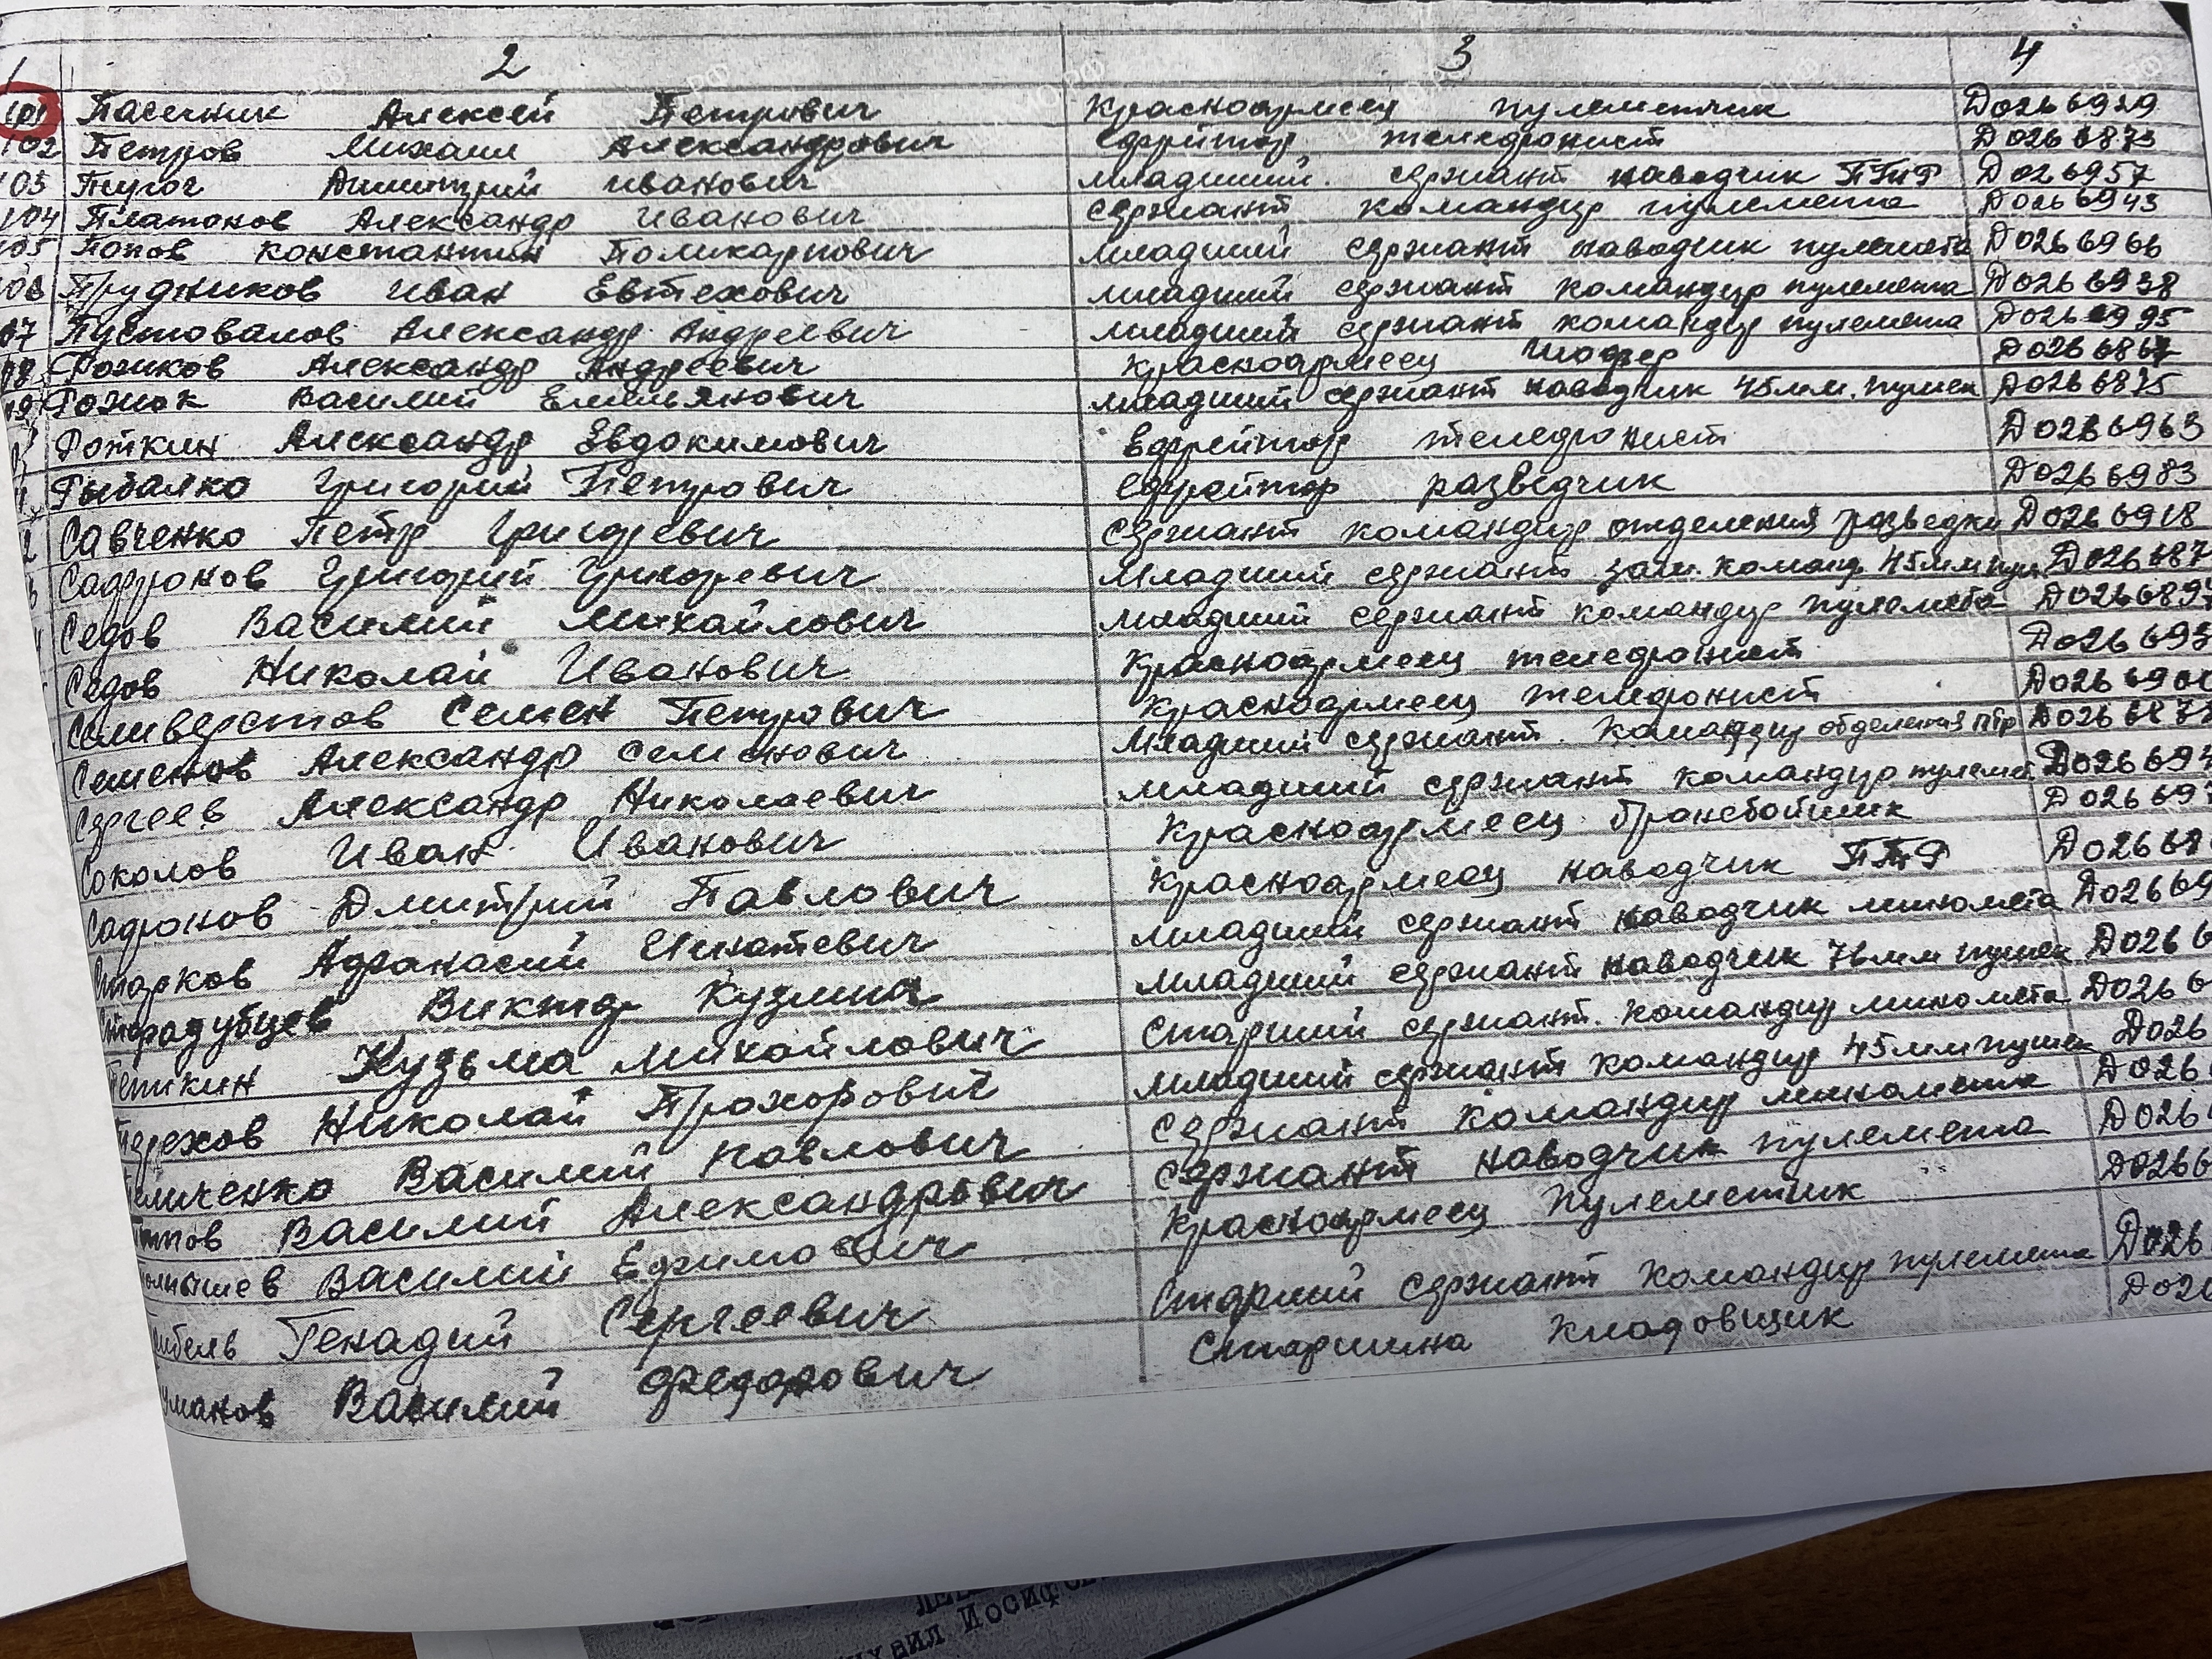 1 2 3 4
101 Пасечник Алексей Петрович Красноармеец пулеметчик Д0266929
102 Петров Михаил Александрович Ефрейтор телефонист Д0266873
103 Пугог Дмитрий Иванович Младший сержант наводчик ПТР Д026957
104 Платонов Александр Иванович Сержант командир пулемета Д0266943
105 Попов Константин Поликарпович Младший сержант наводчик пулемета Д0266966
106 Прудников Иван Евтехович Младший сержант командир пулемета Д0266938
07 Пустовалов Александр Андреевич Младший сержант командир пулемета Д0266995
08 Рожков Александр Андреевич Красноармеец шофер Д0266867
09 Рожок Василий Емельянович Младший сержант наводчик 45мм. пушек Д0266875
Роткин Александр Евдокимович Ефрейтор телефонист Д0266963
Рыбалко Григорий Петрович Ефрейтор разведчик Д0266983
Савченко Петр Григорьевич Сержант командир отделения разведки Д0266918
Сафронов Григорий Григорьевич Младший сержант зам. команд. 45мм Д026687
Седов Василий Михайлович Младший сержант командир пулемета Д026689
Седов Николай Иванович Красноармеец телефонист Д026695
Селиверстов Семен Петрович Красноармеец телефонист Д026690
Семенов Александр Семенович Младший сержант командир отделения птр Д026687
Сергеев Александр Николаевич Младший сержант командир пулемет Д026694
Соколов Иван Иванович Красноармеец бронебойщик Д026697
Сафронов Дмитрий Павлович Красноармеец наводчик ПТР Д02668
Старков Афанасий Игнатевич Младший сержант наводчик миномета Д02669
Стародубцев Виктор Кузмич Младший сержант наводчик 76мм пушек Д0266
Теткин Кузьма Михайлович Старший сержант командир миномета Д0266
Терехов Николай Прохорович Младший сержант командир 45мм пушек Д026
Тимченко Василий Павлович Сержант командир миномета Д026
Титов Василий Александрович Сержант наводчик пулемета Д026
Василий Ефимович Красноармеец пулеметчик Д0266
Генадий Сергеевич Старший сержант командир пулемета Д026
манов Василий Федорович Старшина кладовщик Д026
Иосиф